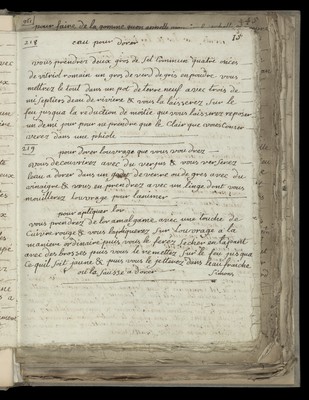 pour faire de la gomme
218 eau pour dorer 15
vous prendrez deux gros de sel commun quatre onces
de vitriol romain un gros de verd de gris en poudre vous
mettrez le tout dans un pot de terre neuf avec trois de
mi septiers deau de riviere & vous la laisserez sur le
feu jusqua la reduction de moitie que vous laisserez reposer
un demi jour pour ne prendre que le clair que vous conser
verez dans une phiole
219 pour dorer louvrage que vous voudrez
vous decouvrirez avec du verjus & vous verserez
leau a dorer dans un de verre ou de gres avec du
vinaigre & vous en prendrez avec un linge dont vous
mouillerez louvrage pour
pour apliquer lor
vous prendrez de lor amalgamé avec une touche de
cuivre rouge & vous lapliquerez sur louvrage a la
maniere ordinaire puis vous le ferez secher en
avec des brosses puis vous le remettez sur le feu jusqua
ce quil soit jaune & puis vous le jetterez dans leau froide
ou la sausse a dorer